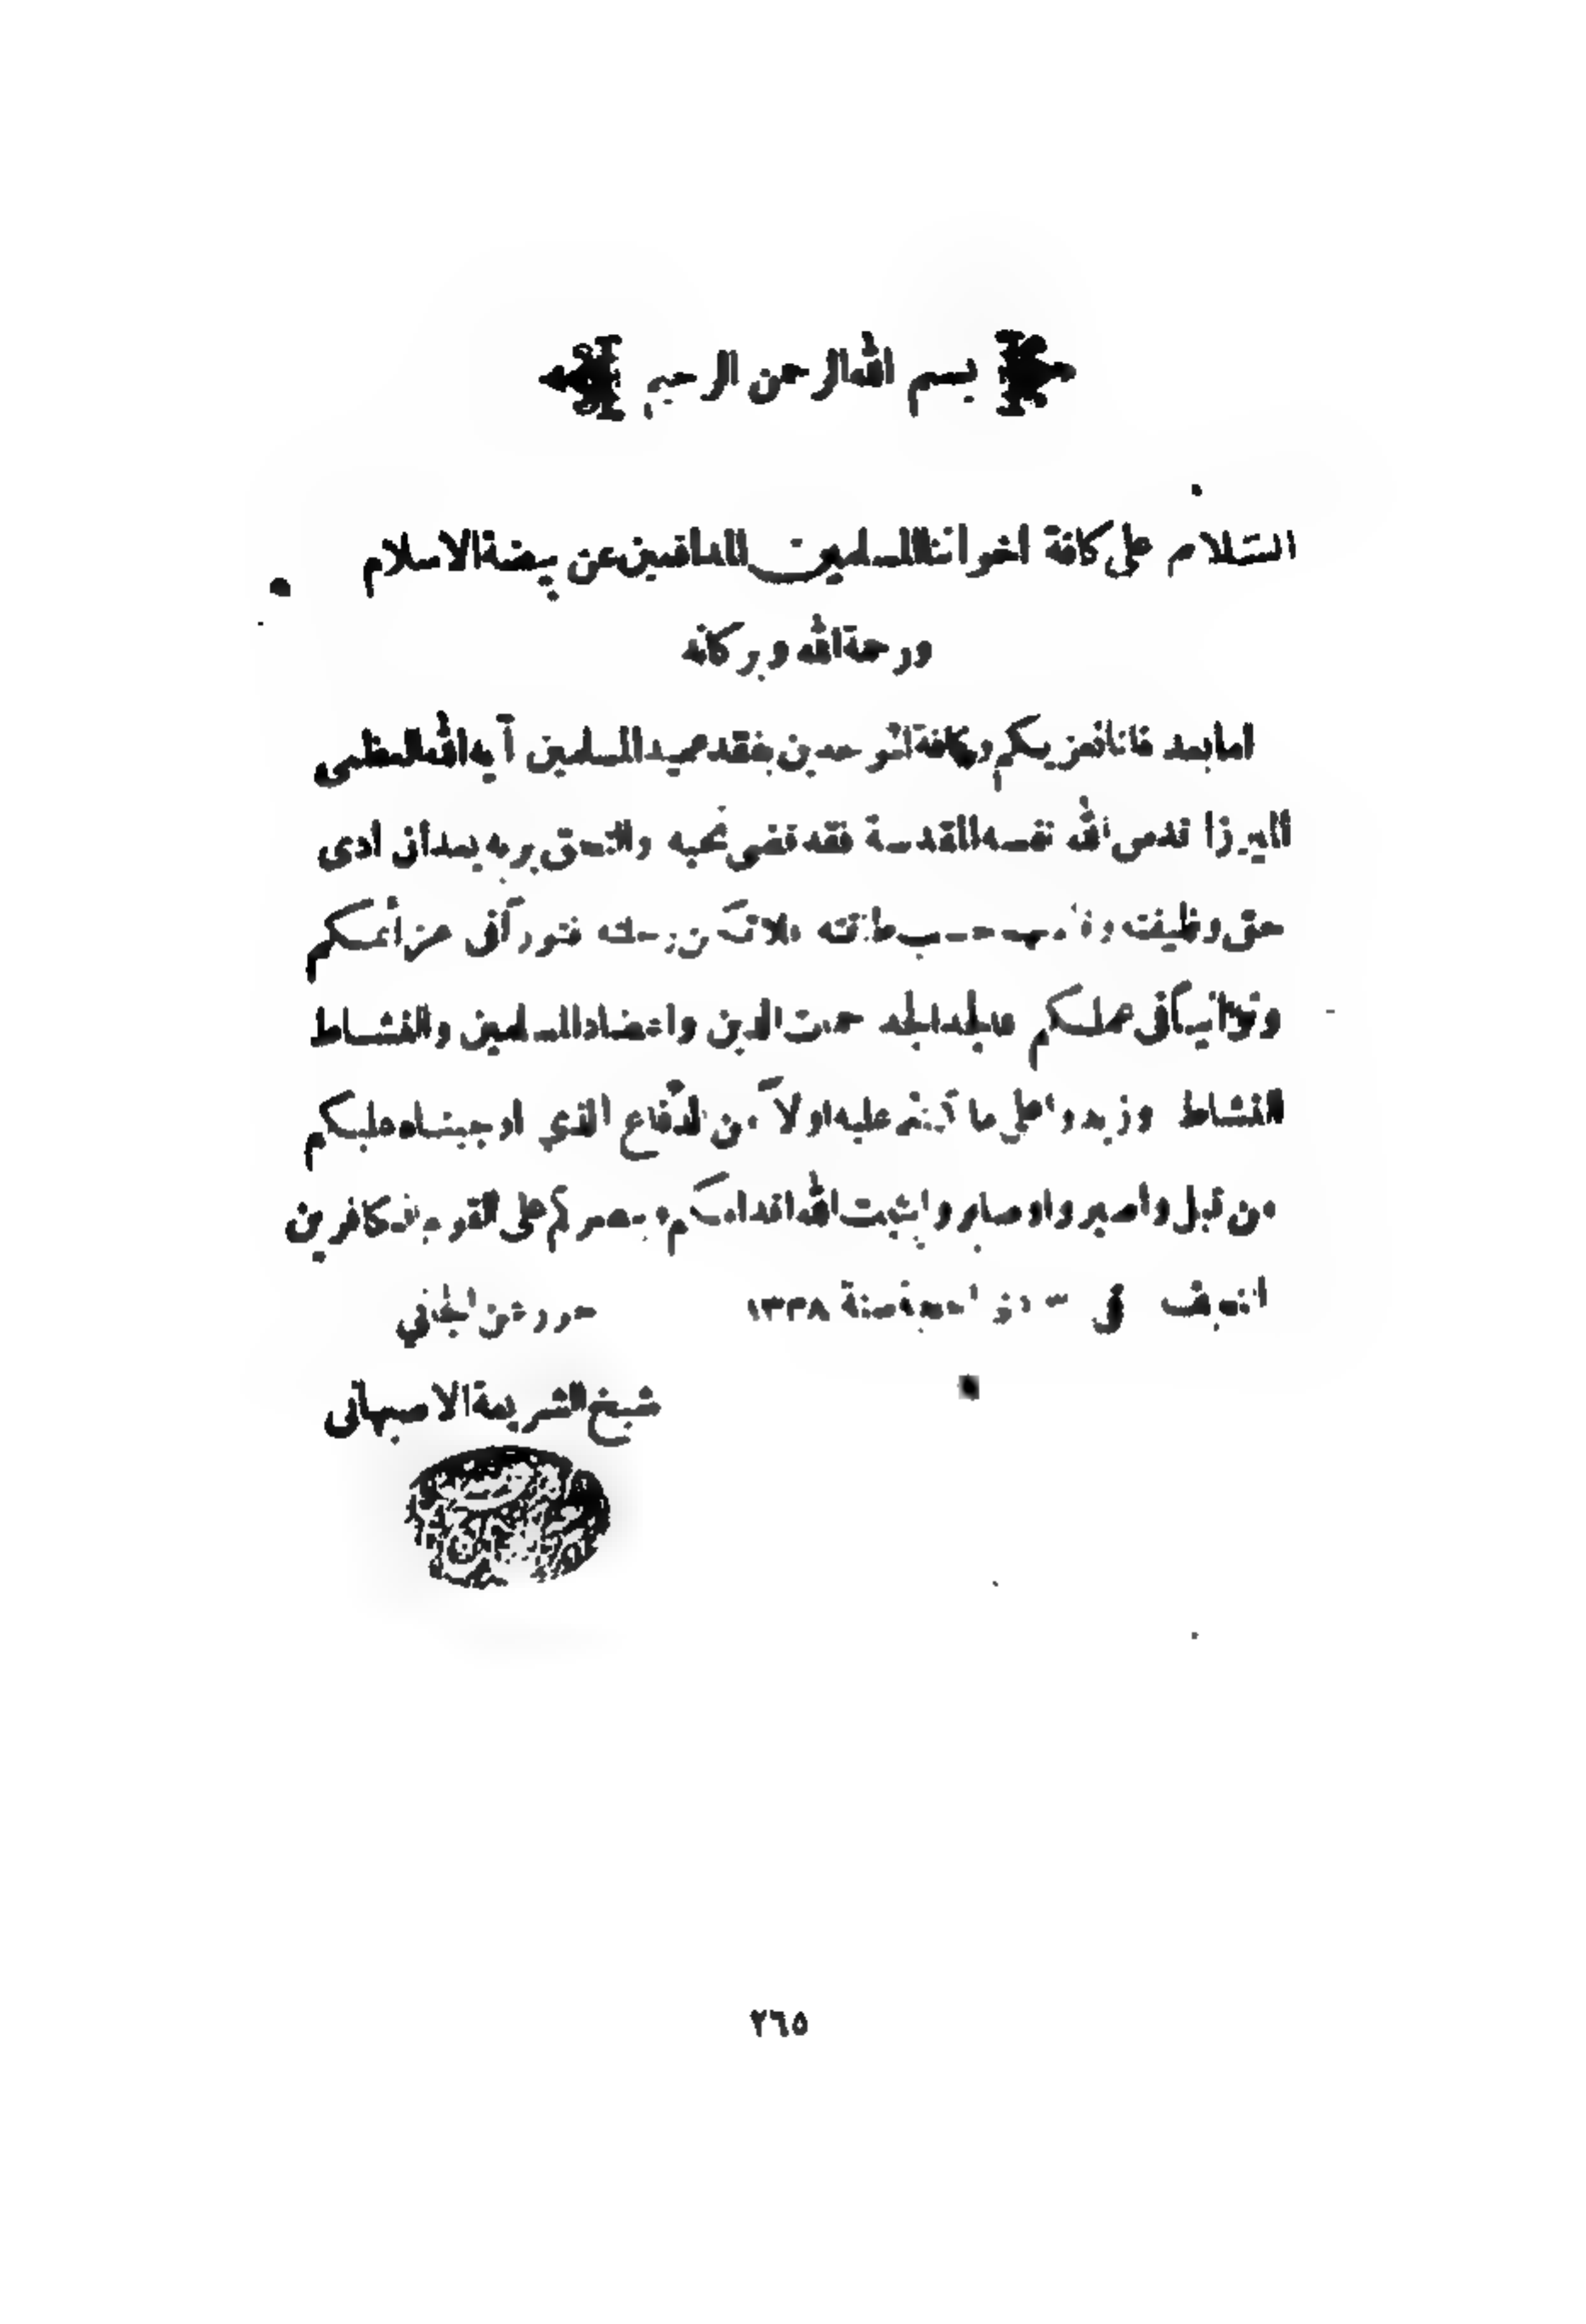 بسم الله الرحمن الرحيم
السلام على كافة اخواننا المسلمين المدافعين عن بيضة الاسلام
ورحمة الله وبركاته
اما بعد فانا نعزيكم وكافة الموحدين بفقد عميد المسلمين آية الله العظمى
الميرزا قدس الله نفسه المقدسة فقد قضى نحبه والتحق بربه بعد ان ادى
حق وظيفته حسب طاقته فلا تكن رحلته فتوراً فى عزائمكم
وتوانياً فى عملكم فالجد الجد حماة الدين واعضاد المسلمين والنشاط
النشاط وزيدوا على ما كنتم عليه اولاً من الدفاع الذي اوجبناه عليكم
من قبل واصبروا وصابروا يثبت الله اقدامكم وينصركم على القوم الكافرين
النجف في سنة ١٣٣٨
حرره عن الجاني
شيخ الشريعة الاصبهانى
٢٦٥